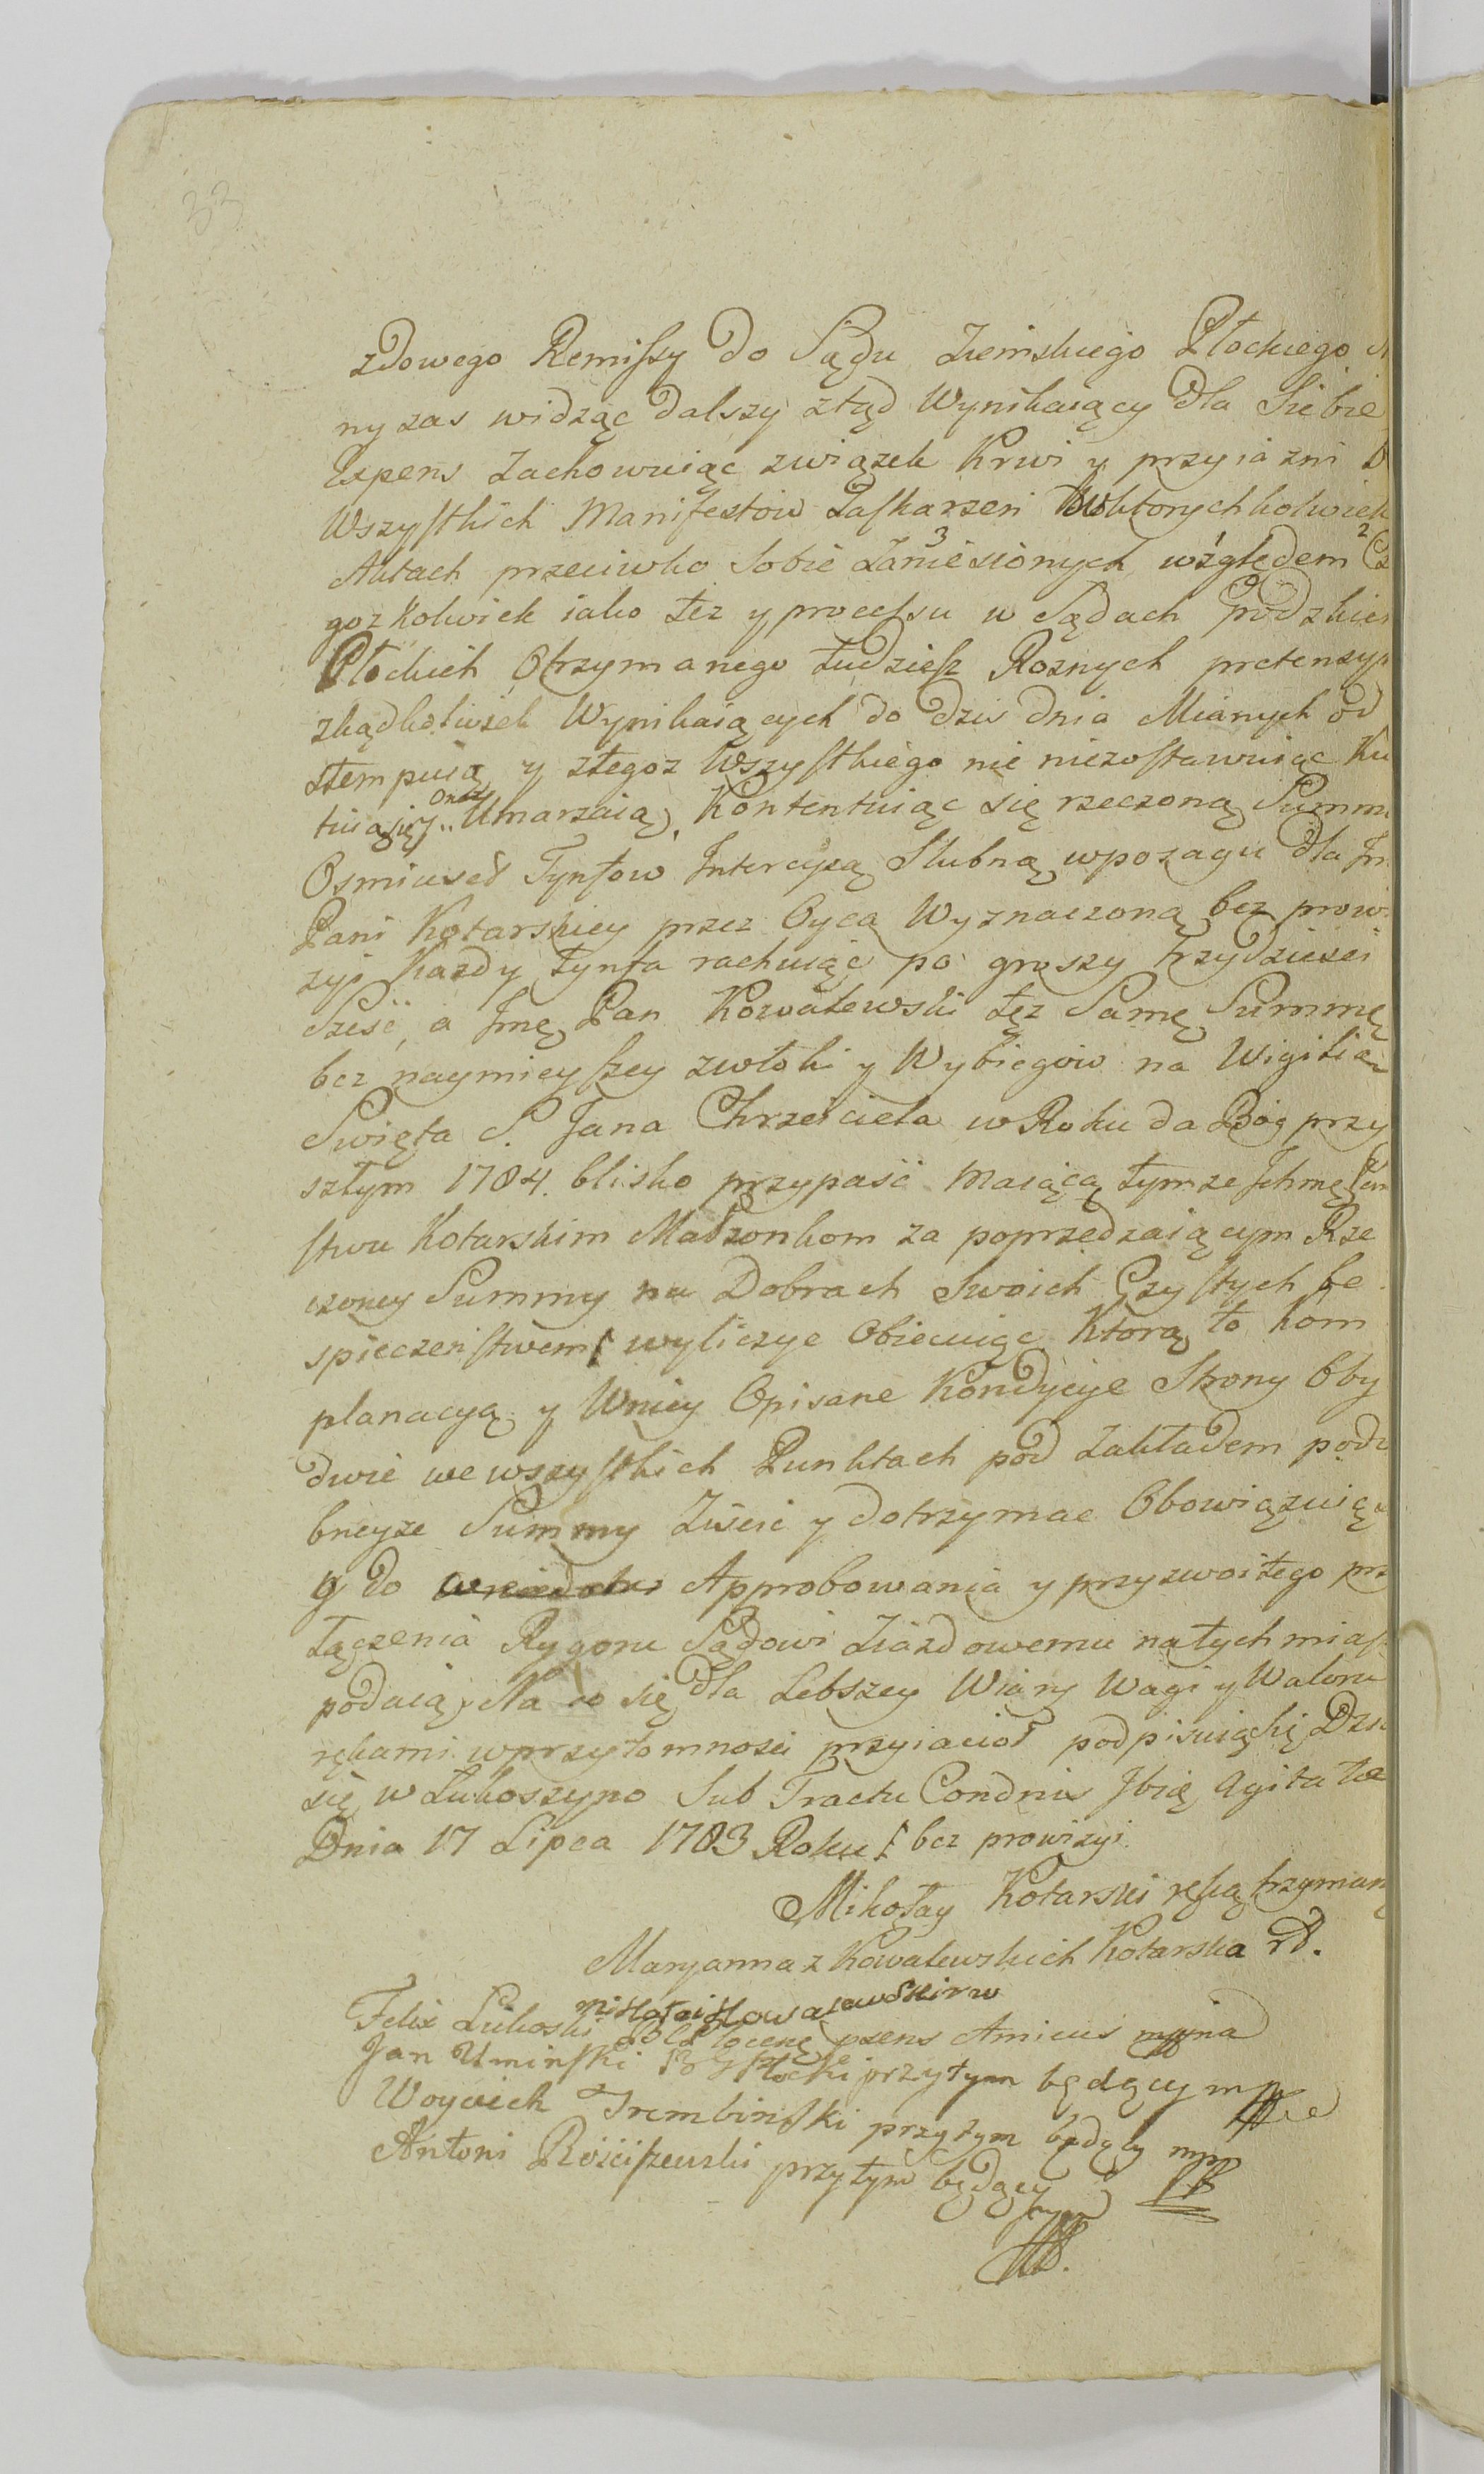 33
zdowego Remissy do Sądu Ziemskiego Płockiego
ny zas widząc dalszy ztąd Wynikaiący dla Siebie
Expens Zachowuiąc związek Krwi y przyiazni
Wszystkich Manifestow Zaskarzen wktorychkolwiek
Aktach przeciwko Sobie Zaniesionych 3 względem 2
goz Kolwiek iako tez y processu w Sądach Grodzkich
Płockich Otrzymanego tudziesz Roznych pretensyi
zkądkolwiek Wynikaiących do dzis dnia Mianych od
stempuią y ztegoz Wszystkiego nie niezostawuiąc Kw
tuią się y oraz Umarzaią, Kontentuiąc się rzeczoną Summ
Osmiuset Tynfow Intercyzą Slubną wposagu dla Im
Pani Kotarskiey przez Oyca Wyznaczoną bez prowi
zyi Kazdy Tynfa rachuiąc po groszy trzydziesci
Szesć, a Jmę Pan Kowalewski tęz Samę Summę
bez naymieyszey zwłoki y Wybiegow na Wigilią
Swięta S. Jana Chrzciciela w Roku da Bog przy
szłym 1784. blisko przypasć Maiącą tymze Ichmę Pan
stwu Kotarskim Małzonkom za poprzedzaiącym Rze
czoney Summy na Dobrach Swoich Czystych be
spieczenstwem wyliczyc Obiecuiąc Ktorą to Kom
planacyą y Wniey Opisane Kondycye Strony Oby
dwie we wszystkich Punktach pod Zakładem podo
bneyze Summy Ziscic y dotrzymac Obowiązuią
y do Approbowania y przyzwoitego prz
łączenia Rygoru Sądowi Ziazdowemu natychmiast
podaią, Na co się dla Lebszey Wiary Wagi y Waloru
rękami wprzytomnosci przyiacioł podpisuiącki Dzia
się w Łukoszyno Sub Tractu Condnis Jbię Agitatae
Dnia 17 Lipca 1783 Roku bez prowizyi
Mikołay Kotarski ręką trzymaną
Maryanna z Kowalewskich Kotarska
mikołai Kowalewski rw
Felix Lukoski psens Amicus
Jan Uminski B G Płocki przytym będący mp
Woyciech Trembinski przytym będący mp
Antoni Rosciszewski przytym będący